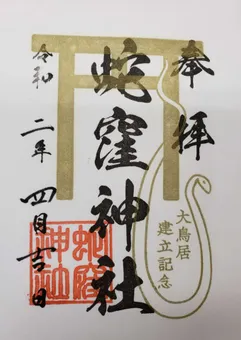 奉拝
大鳥居
建立記念
蛇窪神社
蛇窪
神社
令和
二年
四月吉日